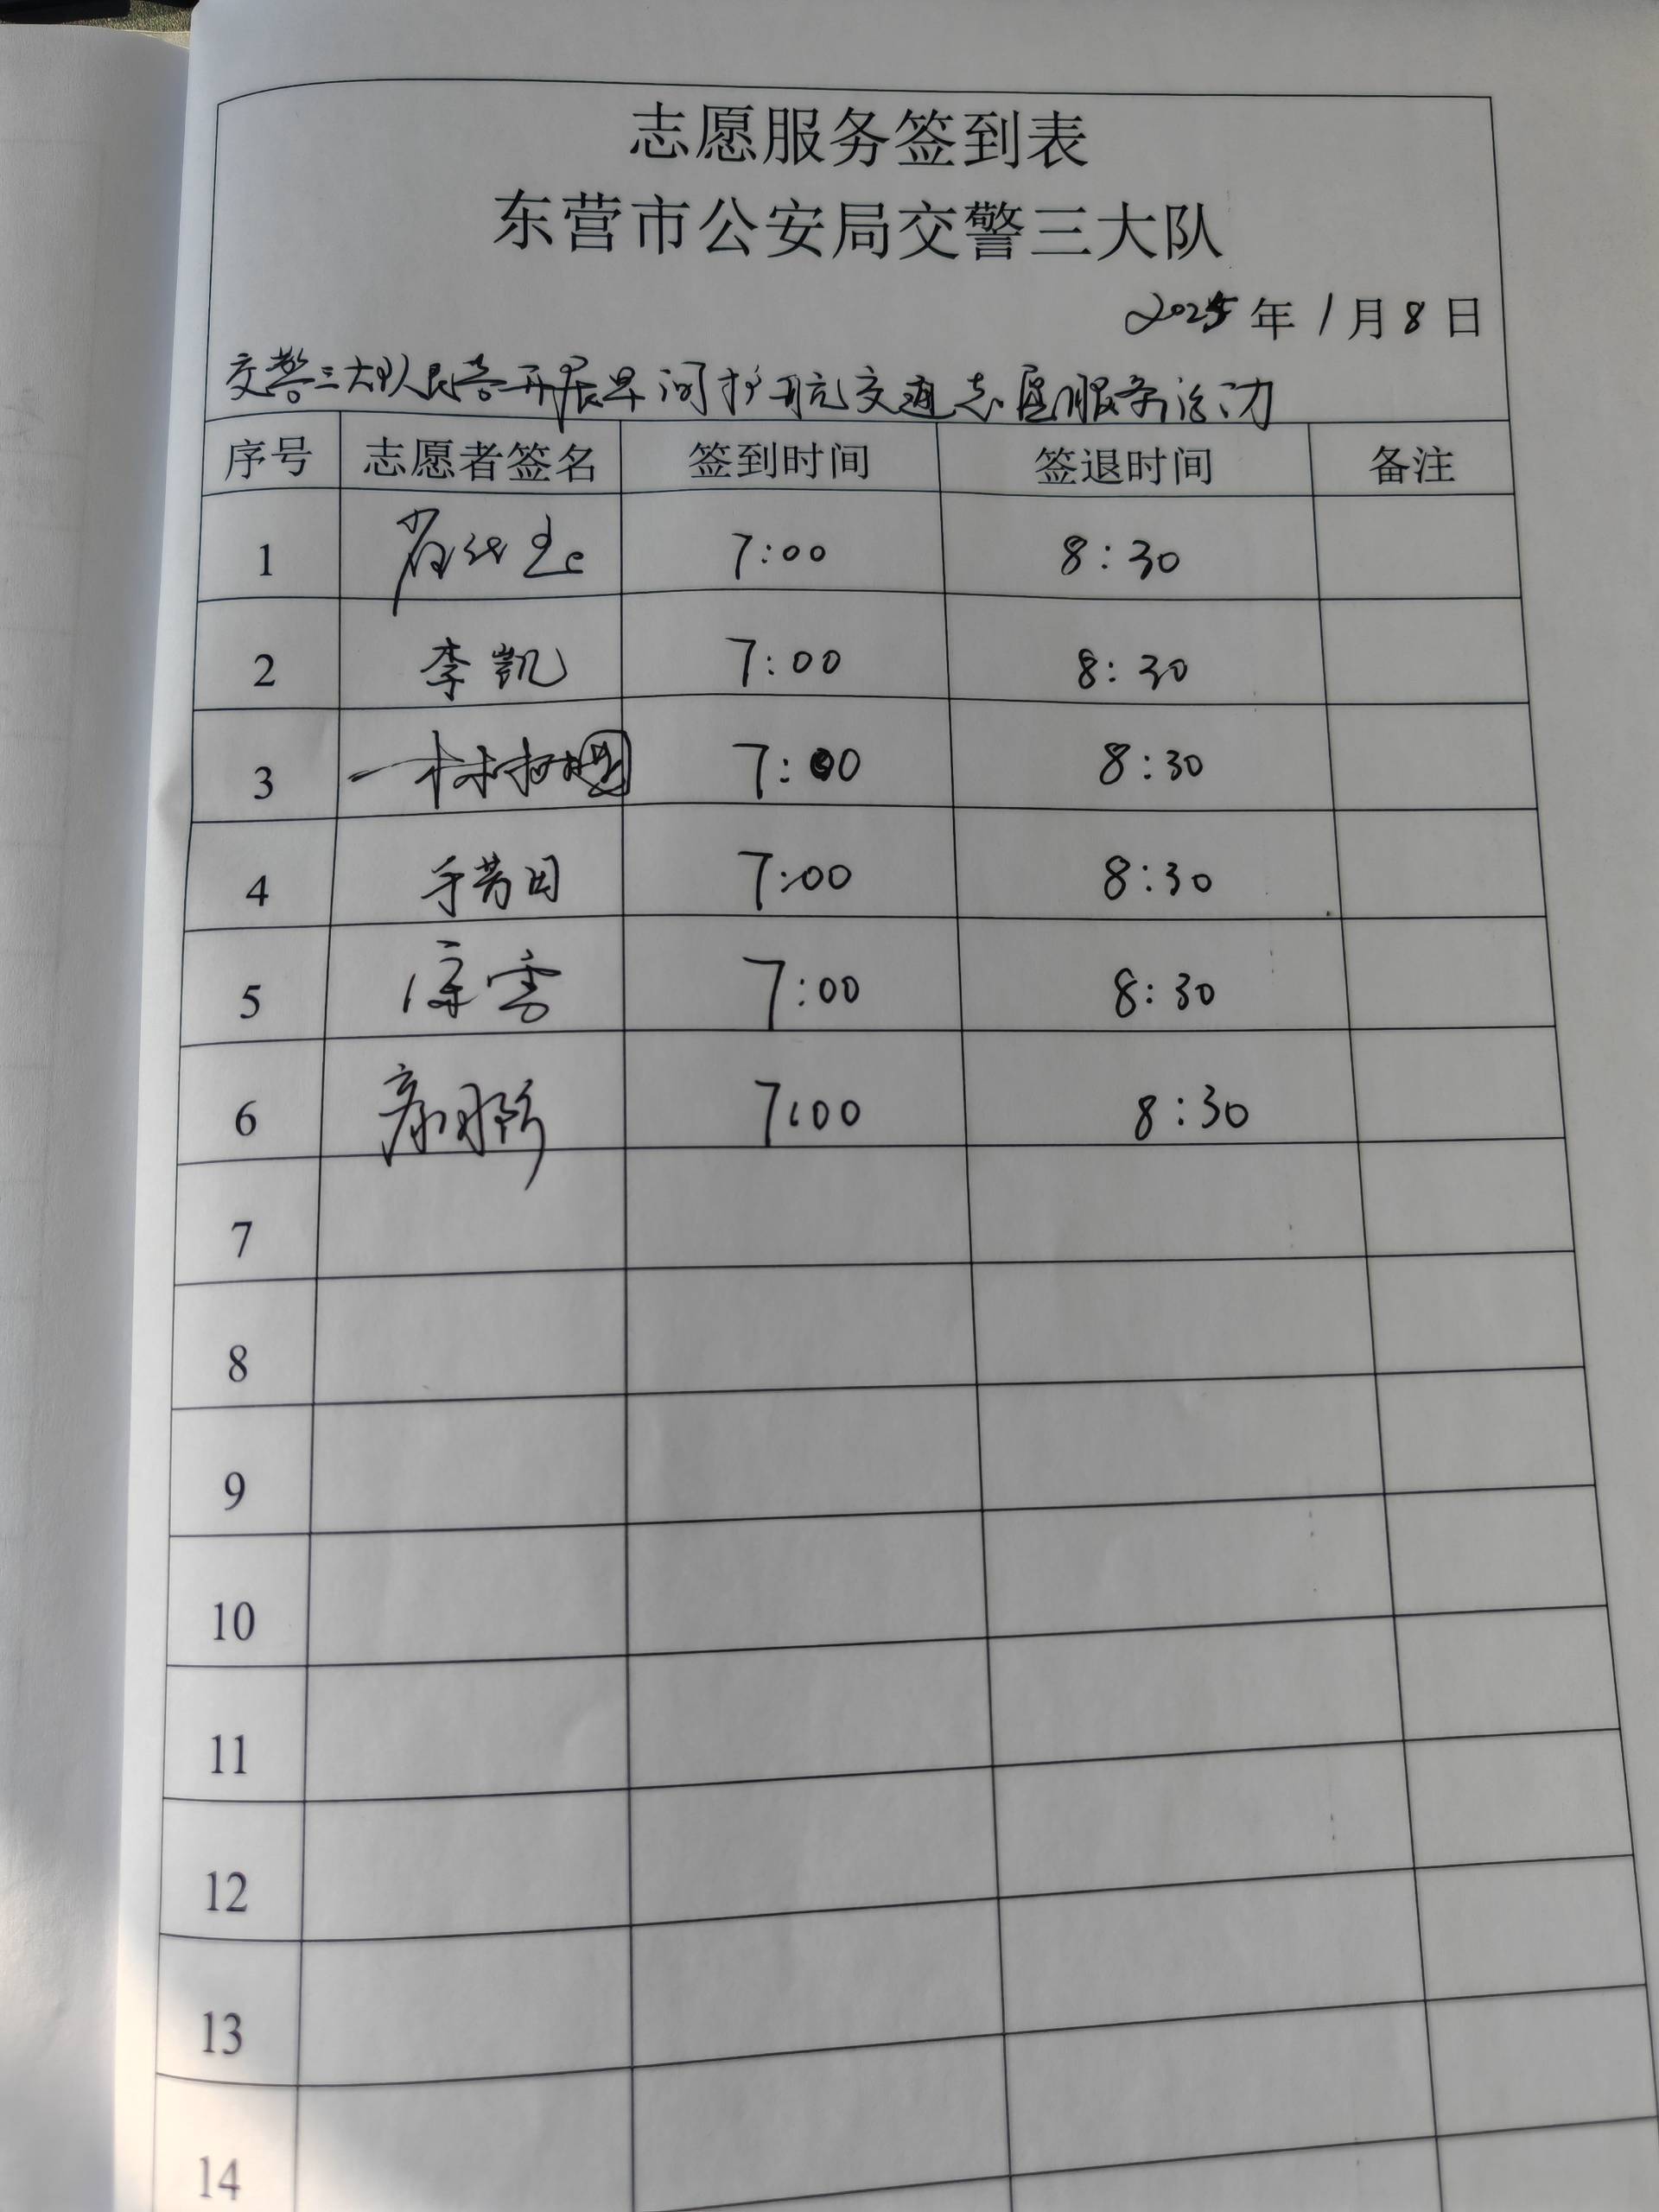 志愿服务签到表
东营市公安局交警三大队
2025年1月8日
交警三大队民警开展早间护航交通志愿服务活动
序号 志愿者签名 签到时间 签退时间 备注
1 7:00 8:30
2 李凯 7:00 8:30
3 7:00 8:30
4 7:00 8:30
5 7:00 8:30
6 7:00 8:30
7
8
9
10
11
12
13
14